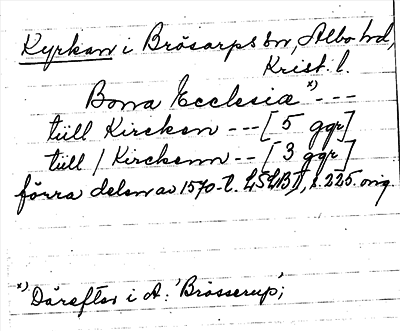 Kyrkan i Brösarps sn, Albo hd,
Krist. l.
Bona Ecclesiæ x) ---
till Kircken --- [5 ggr]
till / Kirckenn -- [3 ggr]
förra delen av 1570-t. LSLB I, s. 225. orig.
x) Därefter i A: 'Brösserup';